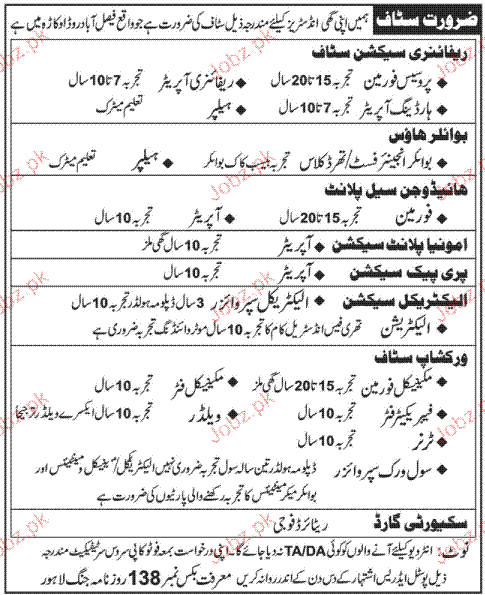 ضرورت سٹاف
ہمیں اپنی گھی انڈسٹریز کیلئے مندرجہ ذیل سٹاف کی ضرورت ہے جو واقع فیصل آباد روڈ اوکاڑہ میں ہے
ریفائنری سیکشن سٹاف
پروسیس فورمین تجربہ 15 تا 20 سال ریفائنری آپریٹر تجربہ 7 تا 10 سال
ہارڈینگ آپریٹر تجربہ 7 تا 10 سال ہیلپر تعلیم میٹرک
بوائلر ھاؤس
بوائلر انجینئر فسٹ/تھرڈ کلاس تجربہ بیب کاک بوائلر ہیلپر تعلیم میٹرک
ھائیڈوجن سیل پلانٹ
فورمین تجربہ 15 تا 20 سال آپریٹر تجربہ 10 سال
امونیا پلانٹ سیکشن آپریٹر تجربہ 10 سال گھی ملز
پری پیک سیکشن آپریٹر تجربہ 10 سال
الیکٹریکل سیکشن الیکٹریکل سپروائزر 3 سال ڈپلومہ ہولڈر تجربہ 10 سال
الیکٹریشن تھری فیس انڈسٹریل کام کا تجربہ 10 سال موٹر وائنڈنگ تجربہ ضروری ہے
ورکشاپ سٹاف
مکینیکل فورمین تجربہ 15 تا 20 سال گھی ملز مکینیکل فٹر تجربہ 10 سال
فیبریکیٹر فٹر تجربہ 10 سال ویلڈر تجربہ 10 سال ایکسرے ویلڈر ترجیحاً
ٹرنر تجربہ 10 سال
سول ورک سپروائزر ڈپلومہ ہولڈر تین سالہ سول تجربہ ضروری نہیں الیکٹریکل/مکینیکل مینٹیننس اور
بوائلر میکر مینٹیننس کا تجربہ رکھنے والی پارٹیوں کی ضرورت ہے
سکیورٹی گارڈ ریٹائرڈ فوجی
نوٹ: انٹرویو کیلئے آنے والوں کو کوئی TA/DA نہ دیا جائے گا۔ اپنی درخواست بمعہ فوٹو کاپی سروس سرٹیفکیٹ مندرجہ
ذیل پوسٹل ایڈریس اشتہار کے دس دن کے اندر روانہ کریں معرفت بکس نمبر 138 روزنامہ جنگ لاہور
Jobz.pk